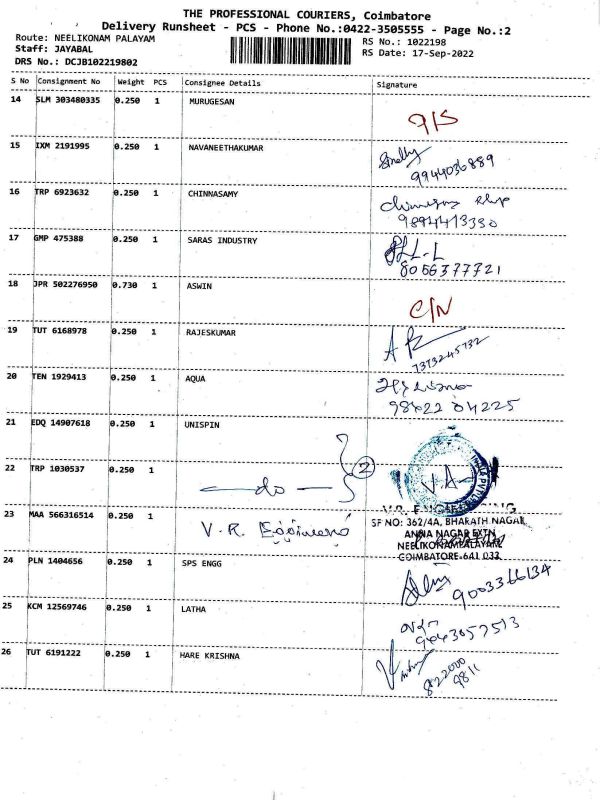 THE PROFESSIONAL COURIERS, Coimbatore
Delivery Runsheet - PCS - Phone No.:0422-3505555 - Page No.:2
Route: NEELIKONAM PALAYAM
Staff: JAYABAL
DRS No.: DCJB102219802
RS No.: 1022198
RS Date: 17-Sep-2022
S No Consignment No Weight PCS Consignee Details Signature
14 SLM 303480335 0.250 1 MURUGESAN
15 IXM 2191995 0.250 1 NAVANEETHAKUMAR
9944036889
16 TRP 6923632 0.250 1 CHINNASAMY
9894413330
17 GMP 475388 0.250 1 SARAS INDUSTRY
8056377721
18 JPR 502276950 0.730 1 ASWIN C/N
19 TUT 6168978 0.250 1 RAJESKUMAR
7373245732
20 TEN 1929413 0.250 1 AQUA
98422 04225
21 EDQ 14907618 0.250 1 UNISPIN
22 TRP 1030537 0.250 1 — do — 2
V.R. ENGINEERING
23 MAA 566316514 0.250 1 V.R.
SF NO: 362/4A, BHARATH NAGAR
ANNA NAGAR EXTN
NEELIKONAMPALAYAM
COIMBATORE-641 033
24 PLN 1404656 0.250 1 SPS ENGG
9003366134
25 KCM 12569746 0.250 1 LATHA
9443057513
26 TUT 6191222 0.250 1 HARE KRISHNA
822000
9811